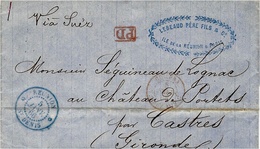 Via Suez
PD
LEBEAUD PÈRE FILS & Cie
ILE DE LA RÉUNION
Monsieur Séguineau de Lognac
au Château de Portets
par Castres
Gironde